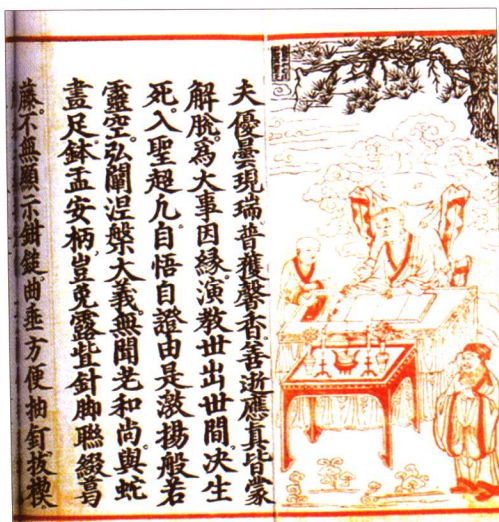 夫優曇現瑞普獲馨香善逝應真皆蒙
解脫。為大事因緣。演教世出世間。决生
死。入聖超凡自悟自證由是激揚般若
靈空。弘闡涅槃大義。無聞老和尚與蛇
畫足。鉢盂安柄。豈免露眥針脚聯綴葛
藤。不無顯示鉗鎚。曲垂方便抽釘拔楔。